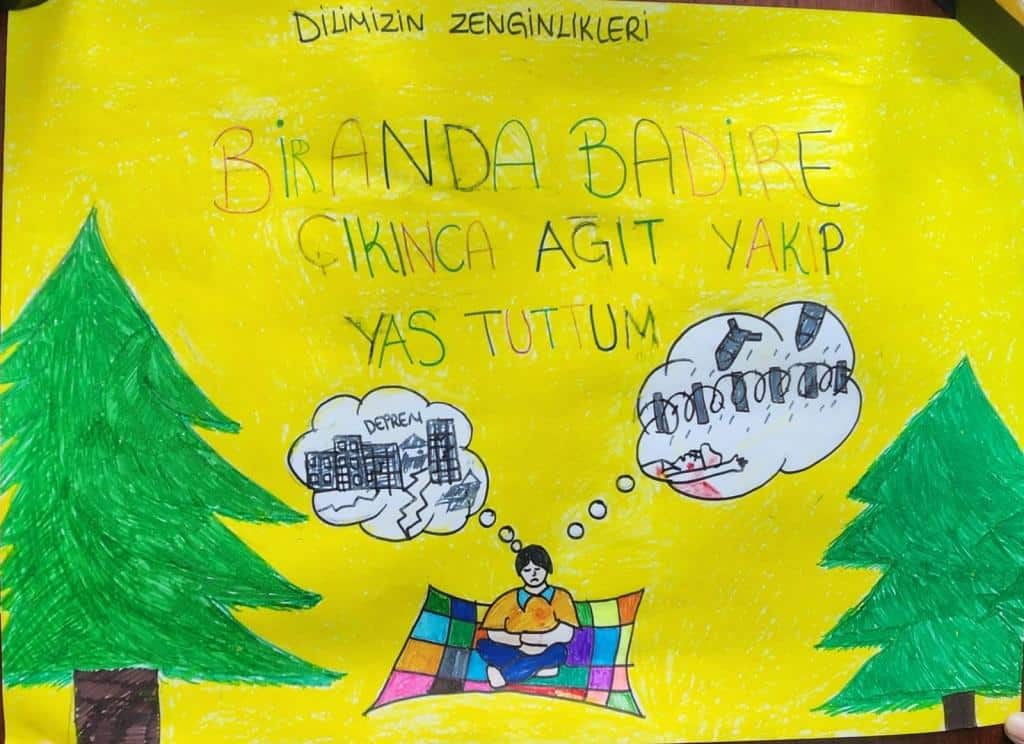 DİLİMİZİN ZENGİNLİKLERİ
BİR ANDA BADİRE
ÇIKINCA AĞIT YAKIP
YAS TUTTUM
DEPREM